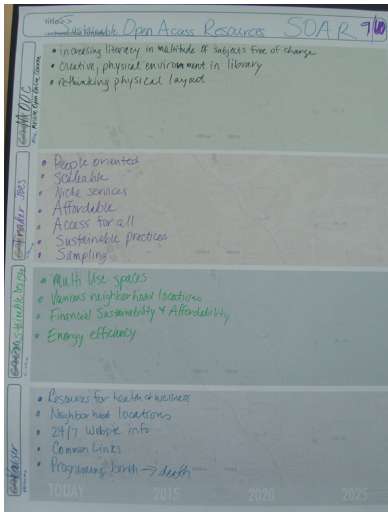 Sustainable Open Access Resources SOAR 9/10
MOOC
Massive Open Online Course
• increasing literacy in multitude of subjects free of charge
• creative, physical environment in library
• rethinking physical layout
trader joes
• People oriented
• Scaleable
• Niche services
• Affordable
• Access for all
• Sustainable practices
• Sampling
sustainable
• Multi Use spaces
• Various neighborhood locations
• Financial Sustainability & Affordability
• Energy efficiency
Kaiser
• Resources for health & wellness
• Neighborhood locations
• 24/7 Website info
• Common Links
• Programing birth → death
TODAY 2015 2020 2025